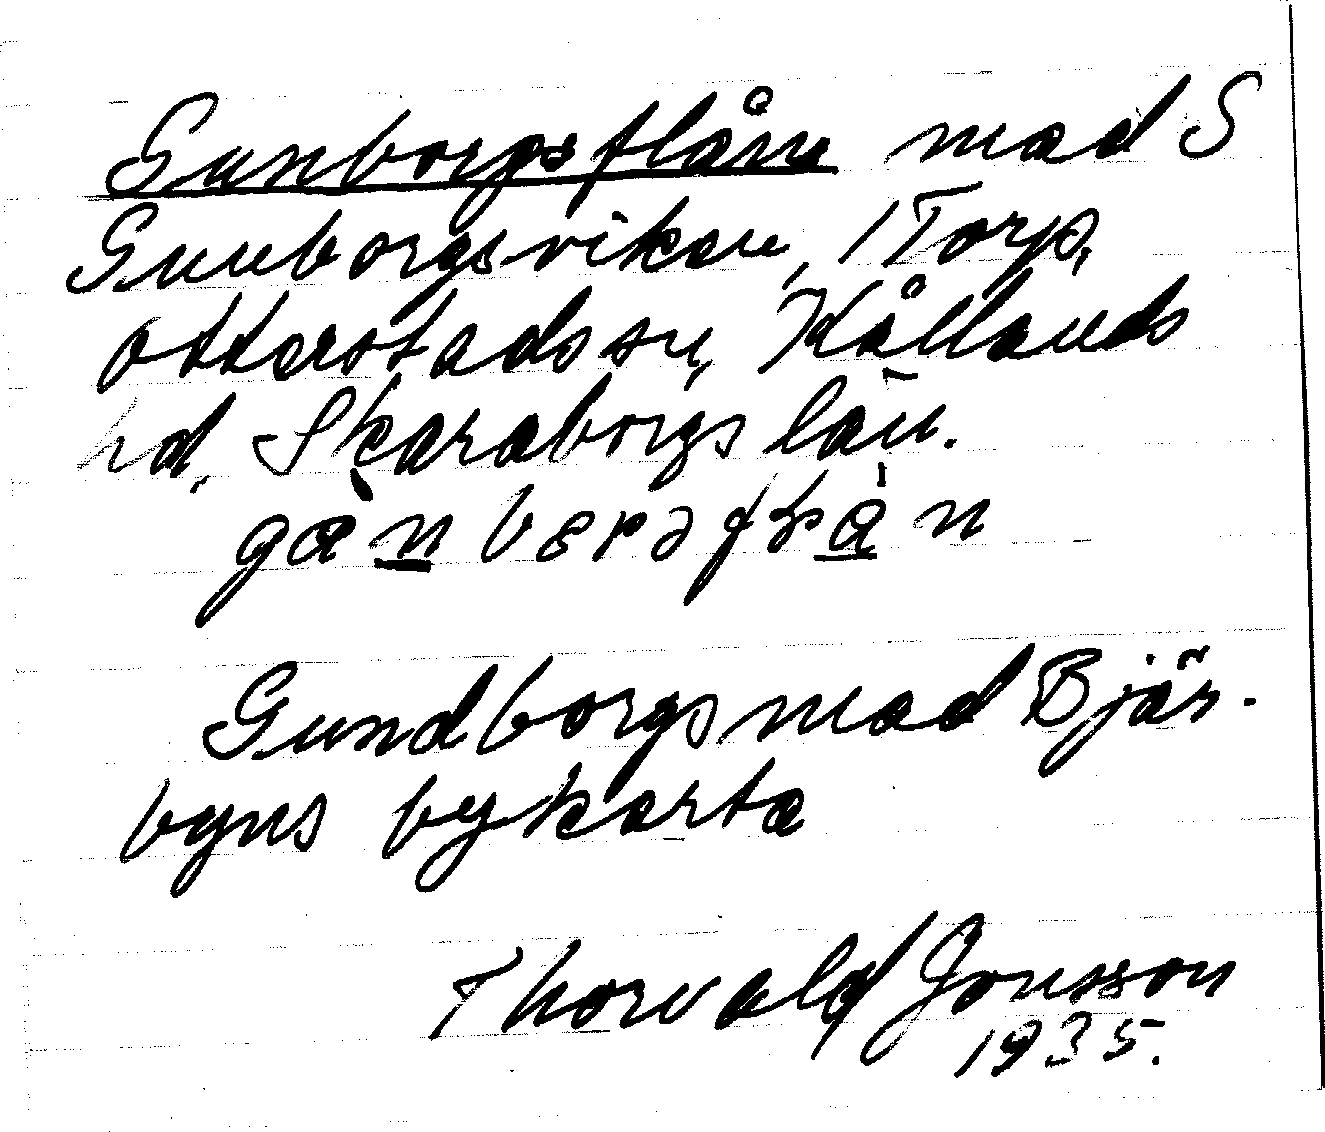 Gunborgsflåne mad S
Gunborgsviken, i Torp,
Otterstads sn, Kållands
hd, Skaraborgs län.
Gundborgsmad Bjär-
byns bykarta
Thorvald Jonsson
1935.